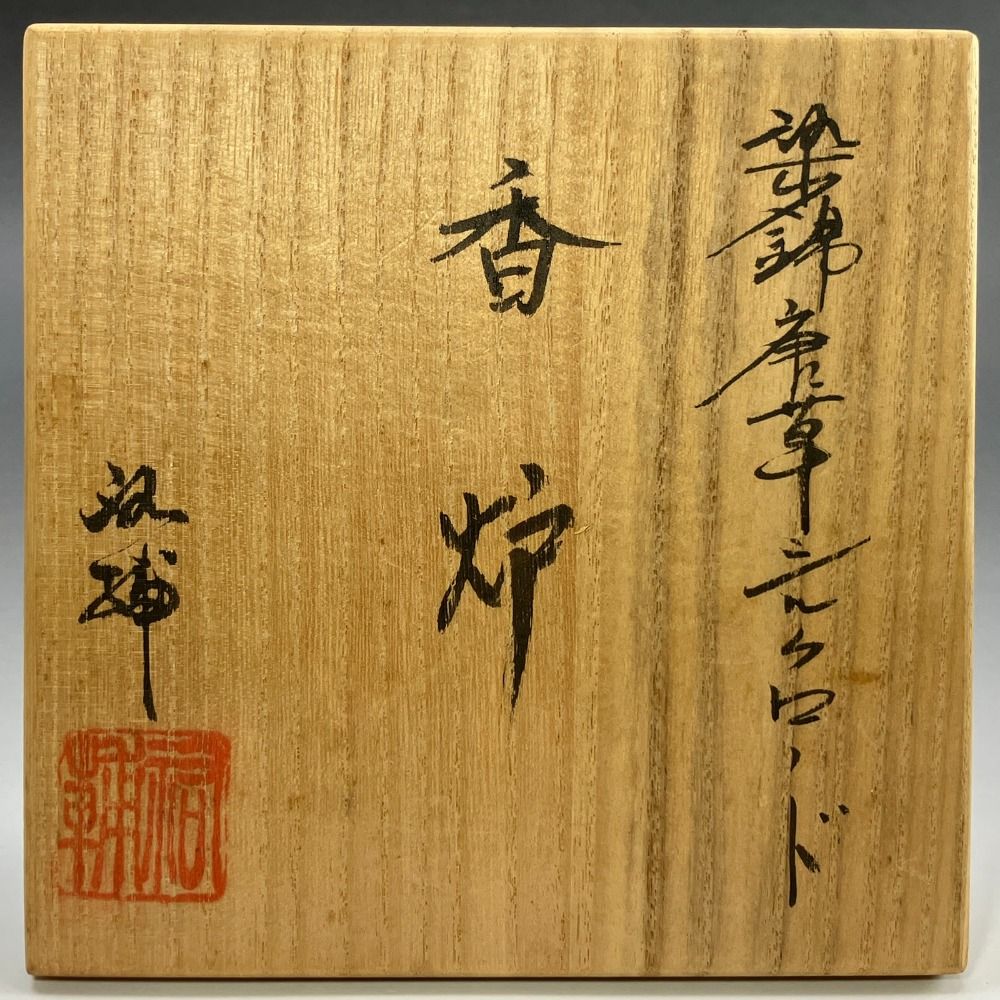 染錦唐草シルクロード
香炉